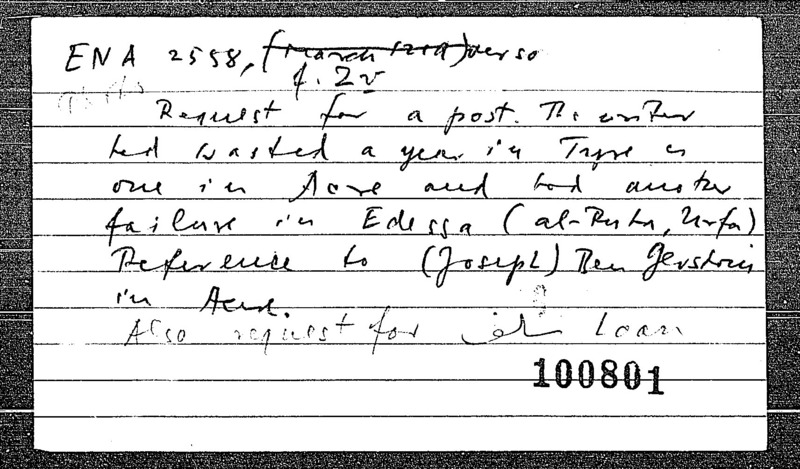 ENA 2558, (March 1219) verso
f. 2v
Request for a post. The writer
had wasted a year in Tyre &
one in Acre and had another
failure in Edessa (al-Ruha, Urfa)
Reference to (Joseph) Ben Gershom
in Acre.
Also request for سلف loan
100801